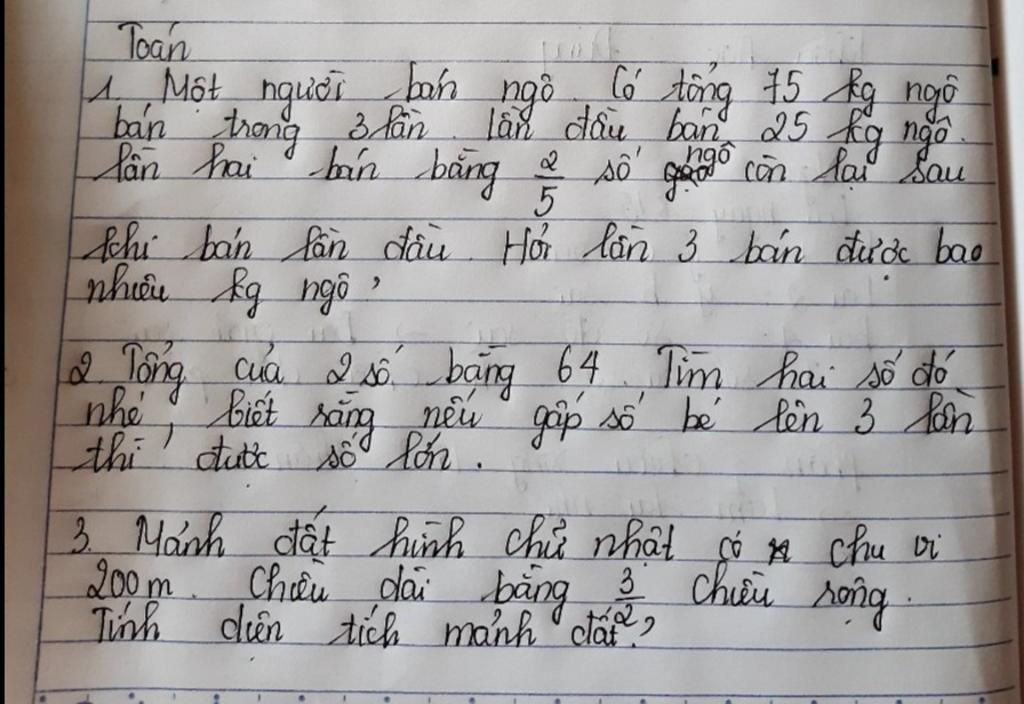 Toán
1. Một người bán ngô. Có tổng 75 kg ngô
bán trong 3 lần. lần đầu bán 25 kg ngô.
lần hai bán bằng 2/5 số ngô còn lại sau
khi bán lần đầu. Hỏi lần 3 bán được bao
nhiêu kg ngô?
2. Tổng của 2 số bằng 64. Tìm hai số đó
nhé, biết rằng nếu gấp số bé lên 3 lần
thì được số lớn.
3. Mảnh đất hình chữ nhật có chu vi
200m. Chiều dài bằng 3/2 chiều rộng.
Tính diện tích mảnh đất?